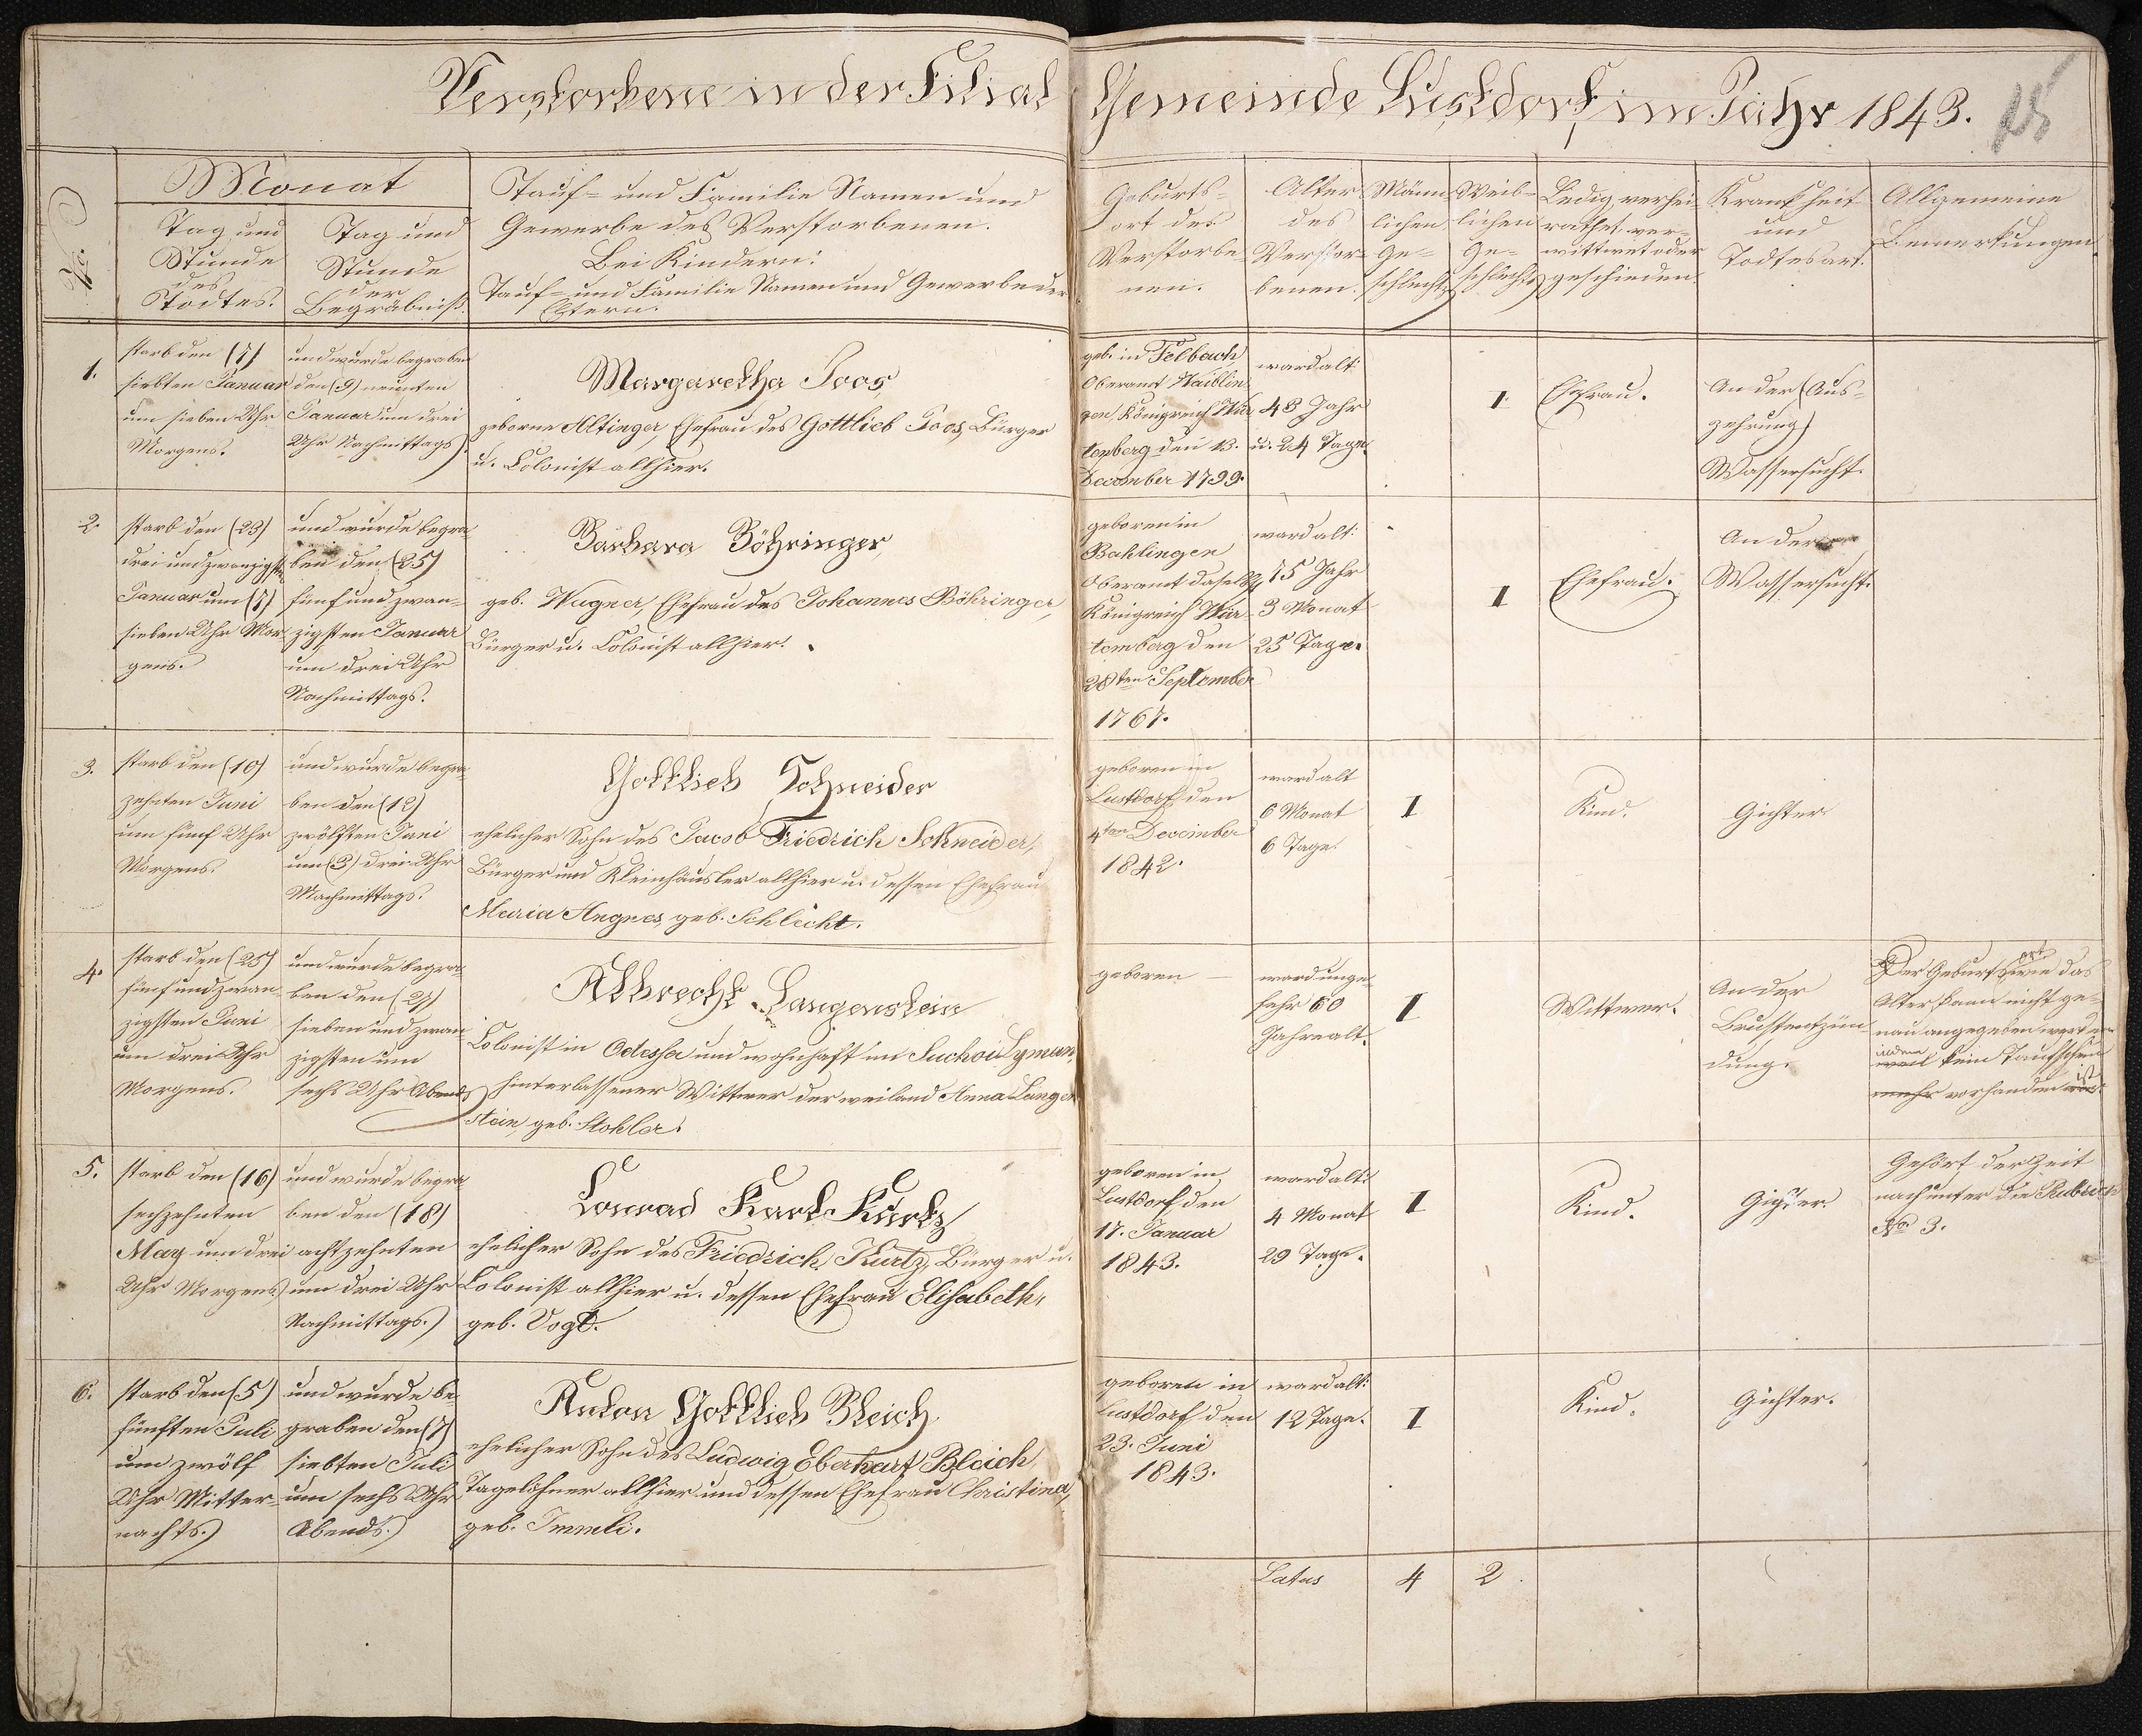 Verstorbene in der Filial Gemeinde Lustdorf, im Jahr 1843.
25
No.
Monat
Tag und
Stunde
des
Todtes.
Tag und
Stunde
der
Begräbniß.
Tauf- und Familie Namen und
Gewerbe des Verstorbenen.
Bei Kindern:
Tauf- und Familie Namen und Gewerbe der
Eltern.
Geburts-
ort des
Verstorbe-
nen.
Alter
des
Verstor-
benen.
Männ-
lichen
Ge-
schlechts
Weib-
lichen
Ge-
schlechts
Ledig, verhei-
rathet, ver-
wittwet oder
geschieden.
Krankheit
und
Todtesart.
Allgemeine
Bemerkungen
1.
starb den (7)
siebten Januar
um sieben Uhr
Morgens.
und wurde begraben
den (9) neunten
Januar um drei
Uhr Nachmittags.
Margaretha Joos,
geborne Altinger, Ehefrau des Gottlieb Joos, Bürger
u. Colonist allhier.
geb. in Felbach,
Oberamt Waiblin
gen, Königreich Wür
temberg den 13.
December 1799.
ward alt:
43 Jahr
u. 24 Tage
I
Ehefrau.
An der (Aus-
zehrung)
Wassersucht.
2.
starb den (23)
drei und zwanzigsten
Januar um (7)
sieben Uhr Mor-
gens.
und wurde begra-
ben den (25)
fünf und zwan-
zigsten Januar
um drei Uhr
Nachmittags.
Barbara Böhringer,
geb. Wagner, Ehefrau des Johannes Böhringer,
Bürger u. Colonist allhier.
geboren in
Bahlingen
Oberamt daselbst
Königreich Wür-
temberg den
28ten September
1767.
ward alt:
75 Jahr
3 Monat
25 Tage.
I
Ehefrau.
An der
Wassersucht.
3.
starb den (10)
zehnten Juni
um fünf Uhr
Morgens.
und wurde begra-
ben den (12)
zwölften Juni
um (3) drei Uhr
Nachmittags.
Gottlieb Schneider
ehelicher Sohn des Jacob Friedrich Schneider,
Bürger und Kleinhäusler allhier u. dessen Ehefrau
Maria Angnes, geb. Schlicht.
geboren in
Lustdorf den
4ten December
1842.
ward alt
6 Monat
6 Tage.
I
Kind.
Gichter.
4.
starb den (25)
fünf und zwan-
zigsten Juni
um drei Uhr
Morgens.
und wurde begra-
ben den (27)
sieben und zwan-
zigsten um
sechs Uhr Abends
Albrecht Langenstein
Colonist in Odessa und wohnhaft in Suchoi Lyman,
hinterlassener Wittwer der weiland Anna Langen
stein, geb. Stohler.
geboren —
ward unge-
fähr 60
Jahre alt.
I
Wittwer.
An der
Brustentzün-
dung.
Der Geburtsort wie das
Alter kann nicht ge-
nau angegeben werden
weil indem kein Taufschein
mehr vorhanden ist.
5.
starb den (16)
sechzehnten
May um drei
Uhr Morgens
und wurde begra
ben den (18)
achtzehnten
um drei Uhr
Nachmittags.)
Conrad Karl Kurtz
ehelicher Sohn des Friedrich Kurtz, Bürger u.
Colonist allhier u. dessen Ehefrau Elisabeth,
geb. Vogt.
geboren in
Lustdorf den
17. Januar
1843.
ward alt:
4 Monat
29 Tage.
I
Kind.
Gichter.
Gehört der Zeit
nach unter die Rubrick
No 3.
6.
starb den (5)
fünften Juli
um zwölf
Uhr Mitter-
nachts.)
und wurde be-
graben den (7)
siebten Juli
um sechs Uhr
Abends.)
Anton Gottlieb Bleich
ehelicher Sohn des Ludwig Eberhart Bleich,
Tagelöhner allhier und dessen Ehefrau Christina,
geb. Immli.
geboren in
Lustdorf den
23. Juni
1843.
ward alt:
12 Tage.
I
Kind.
Gichter.
Latus
4
2